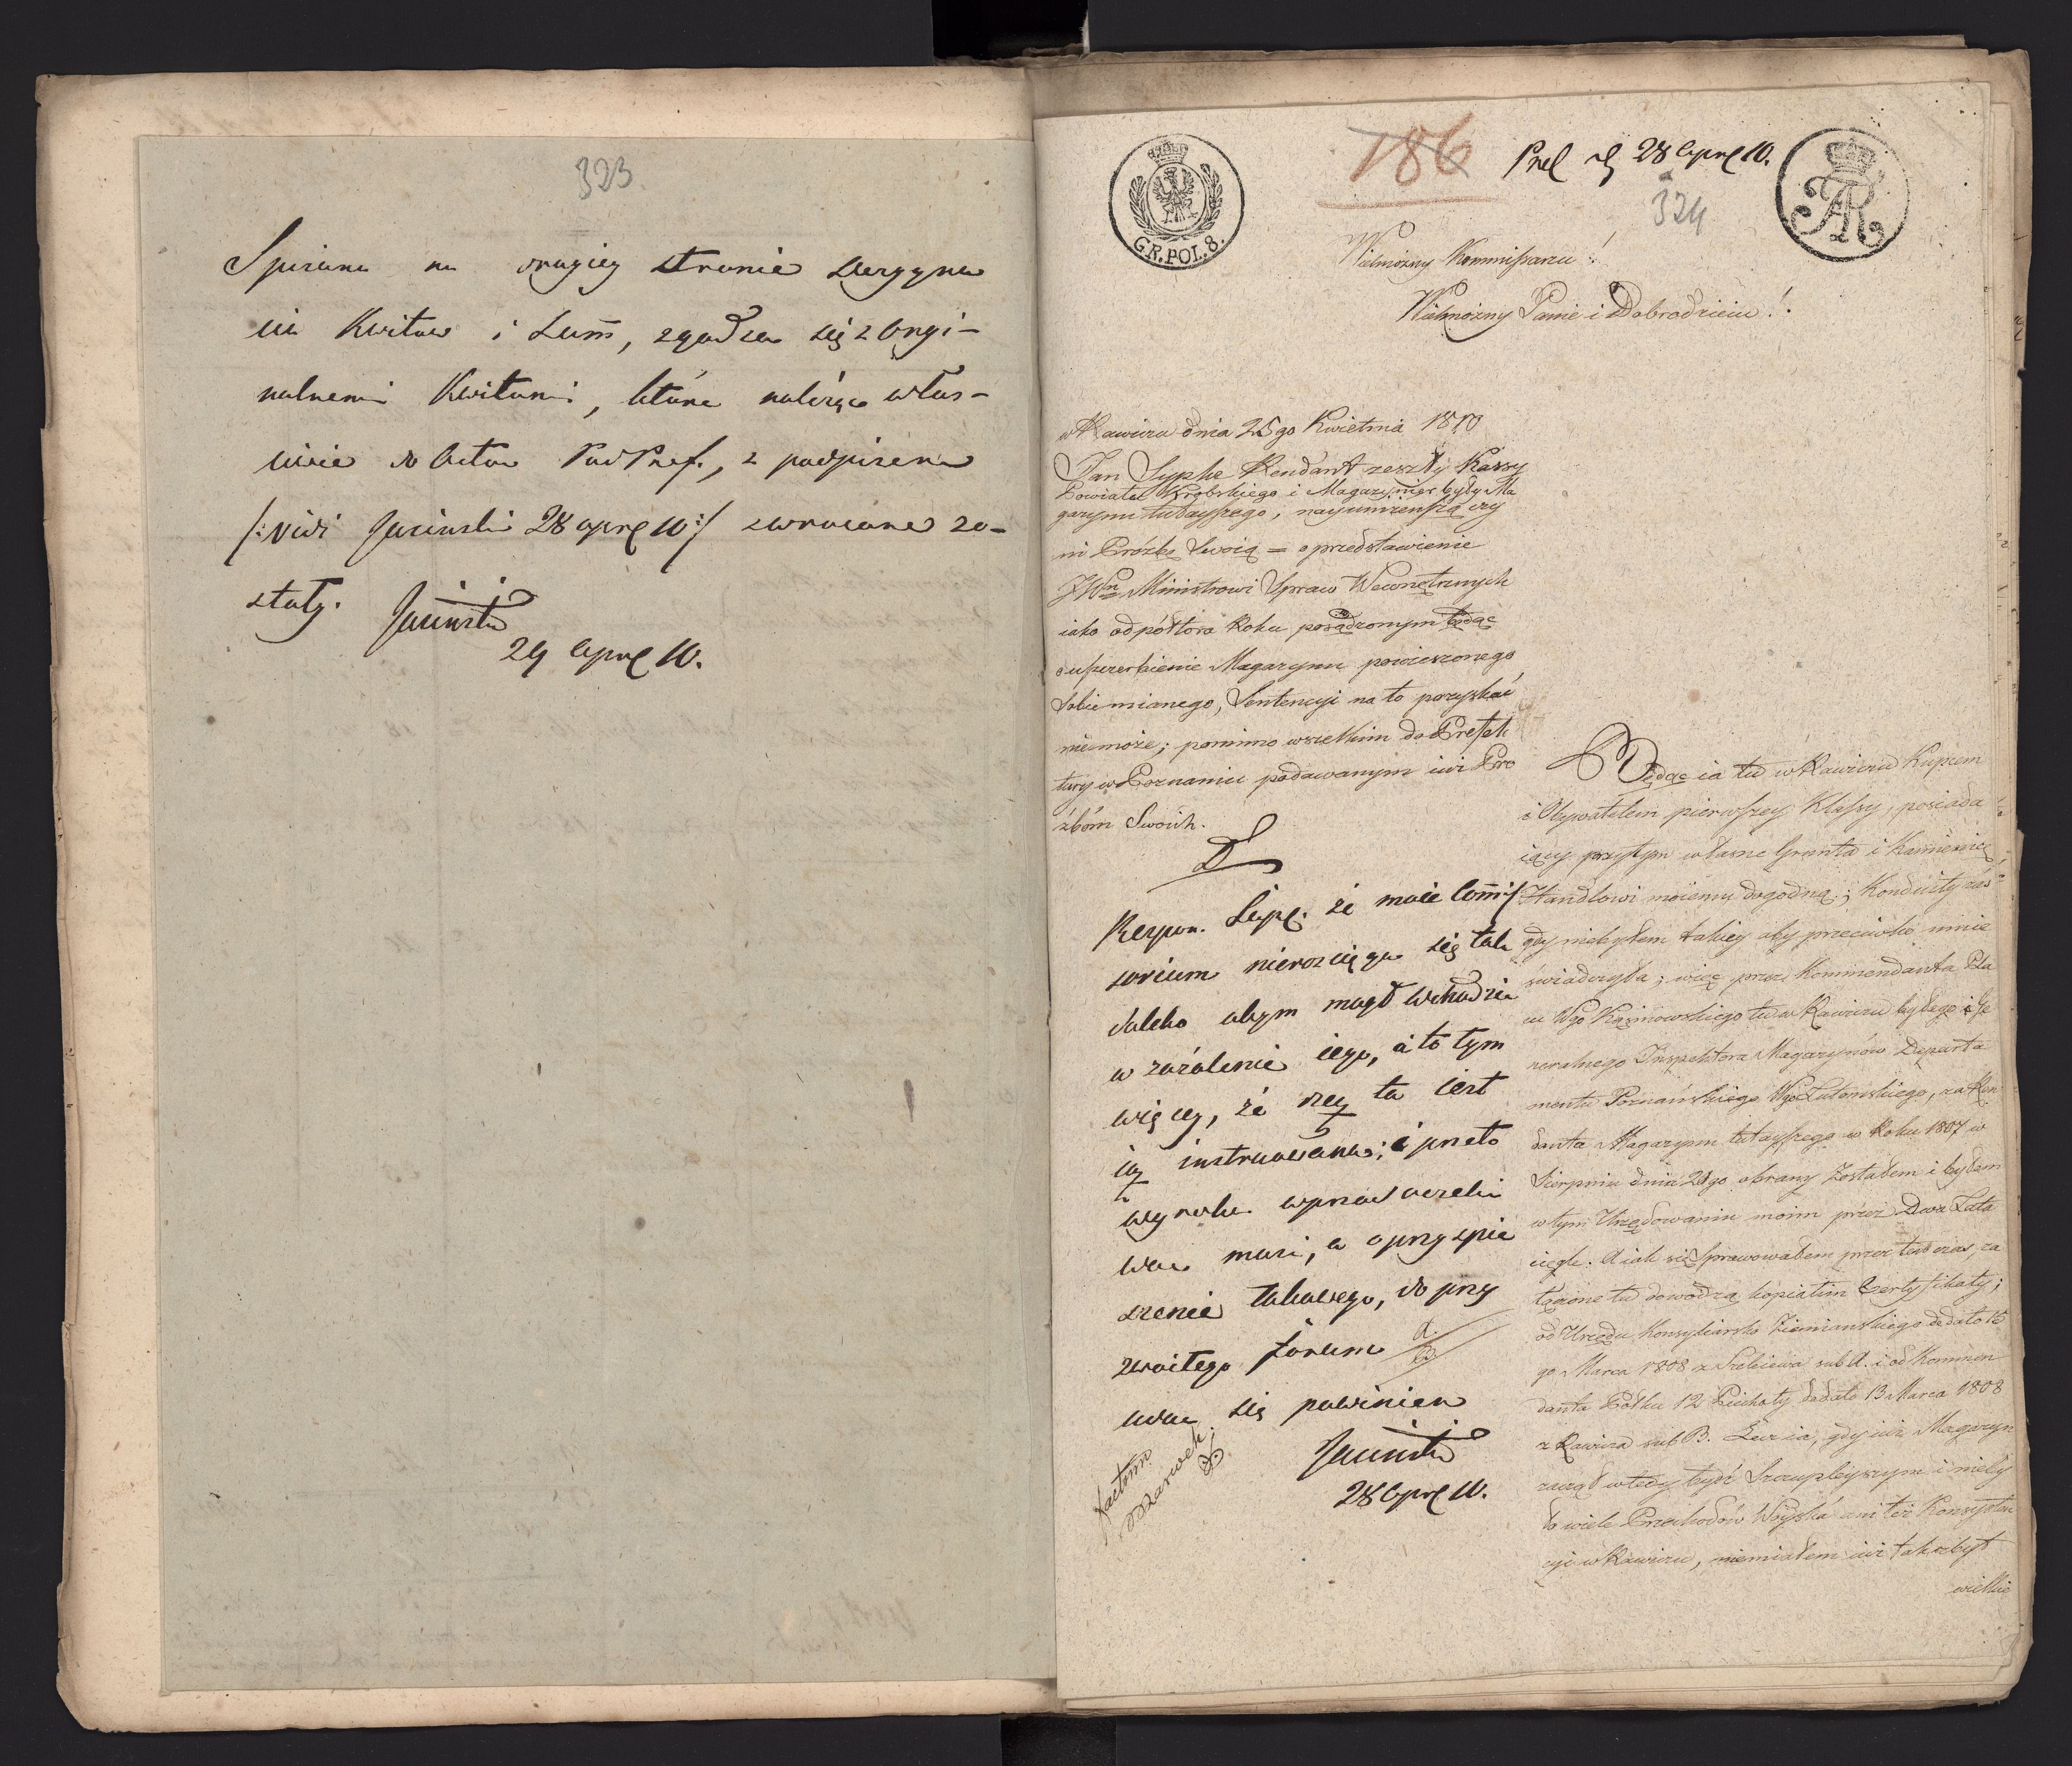 323
Spisane na drugiey stronie
Kwitów i Sum̄, zgadza się z Orygi-
nalnemi Kwitami, które należąc właś-
ciwie do Aktów PodPref., z podpisem
/: vidi Jasinski 28 apr 10 :/ zwrocone zo-
stały.
Jasinski
29 Apr 10.
G.R.POL.8.
186
28 Apr 10.
324
Wielmożny Kommissarzu!
Wielmożny Panie i Dobrodzieiu!
w Rawiczu dnia 25go Kwietnia 1810
Jan Rendant zeszły Kassy
Powiatu Krobskiego i Magazynier były Ma
gazynu tutayszego, nayunizenszą czy
ni Proźbę Swoią = o przedstawienie
JWmu Ministrowi Spraw Wewnętrznych
iako od półtora Roku posądzonym będąc
o uszczerbienie Magazynu powierzonego
Sobie mianego, Sentencyi na to pozyskać
nie może; pomimo wszelkim do Prefek
tury w Poznaniu podawanym iuż Pro
źbóm Swoich.
Respon. Supl. że moie Com̄is
sorium nierozciąga się tak
daleko abym mogł wchodzić
w zażalenie iego, a to tym
więcey, że rzecz ta iest
iuż instruowana; i przeto
wyroku wprzod oczeki
wać musi, a o przyspie
szenie takowego, do przy
zwoitego forum
wać się powinien
Jasinski
28 Apr 10.
factum
Będąc ia tu w Rawiczu Kupcem
i Obywatelem pierwszey Klassy, posiada
iący przytym własne Grunta i Kamienicę
Handlowi moiemu dogodną; Konduity zaś
gdy niebyłem takiey aby przeciwko mnie
swiadczyła; więc przez Kommendanta Pla
cu Wgo tu w Rawiczu byłego i Ge
neralnego Inspektora Magazynów Departa
mentu Poznańskiego Wgo Lutomskiego, za Ren
danta Magazynu tutayszego w Roku 1807 w
Sierpniu dnia 21go obrany zostałem i byłem
w tym Urzędowaniu moim przez Dwa Lata
ciągle. A iak się Sprawowałem przez ten czas, za
łączone tu dowodzą kopiatim Certyfikaty;
od Urzędu Konsyliarsko Ziemianskiego dedato 15
go Marca 1808 z sub A. i od Kommen
danta Półku 12 Piechoty dedato 13 Marca 1808
z Rawicza sub B. Lecz ia, gdy iuż Magazyn
zaczął wtedy bydź Szczupleyszym i nieby
ło wiele Przechodów Woyska ani też Konsysten
cyi w Rawiczu, niemiałem iuż tak zbyt
wielkie